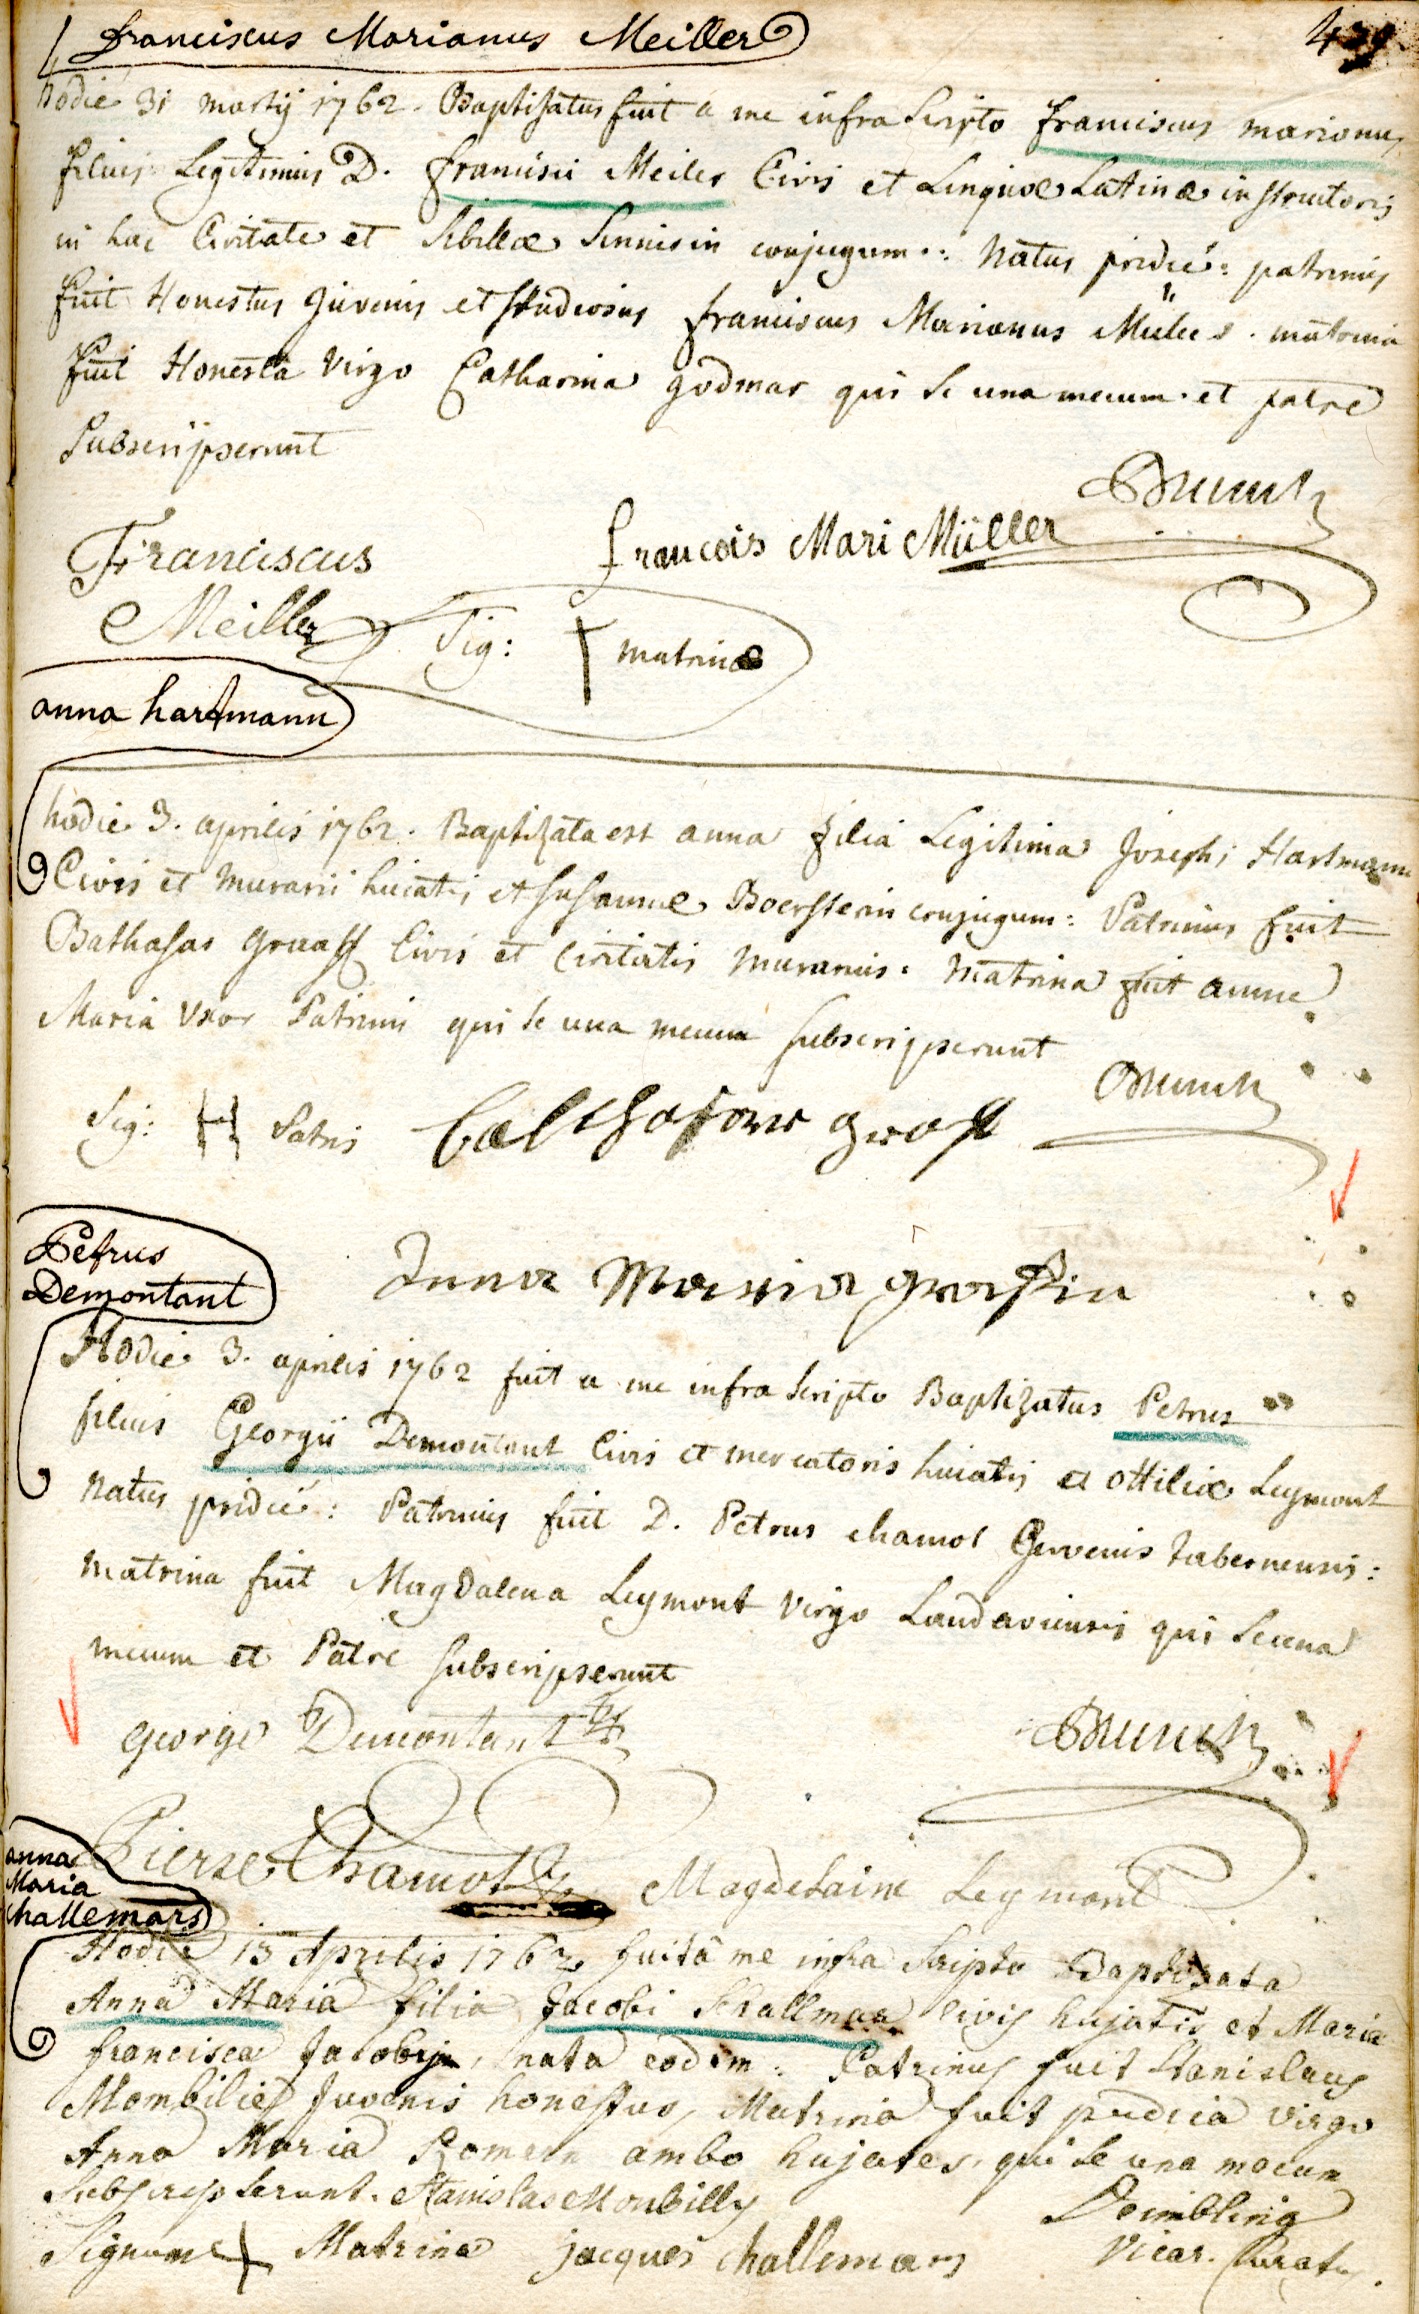 Franciscus Marianus Meiller
hodie 31 martij 1762. Baptisatus fuit a me infra scripto franciscus marianus
filius Legitimus D. francisci Meiler Civis et Linguae Latinae instructoris
in hac Civitate et Sibillae conjugum: Natus pridie: patrinus
fuit Honestus Juvenis et studiosus franciscus Marianus Müller. matrina
fuit Honesta Virgo Catharina godmar qui se una mecum et patre
Subscripserunt
Franciscus
Meiller
francois Mari Müller
Sig: † matrinae
anna hartmann
hodie 3. aprilis 1762. Baptizata est anna filia Legitima Josephi Hartmann
Civis et murarii huiatis et Susannae Boersterin conjugum: Patrinus fuit
Balthasar graaff Civis et Civitatis murarius: Matrina fuit anna
Maria Uxor Patrini qui se una mecum subscripserunt
Sig: H Patris Balthasar graff
Anna Maria graffin
Petrus
Demontant
Hodie 3. aprilis 1762 fuit a me infra scripto Baptizatus Petrus
filius Georgii Demontant Civis et mercatoris huiatis et ottiliae Leymont
Natus pridie: Patrinus fuit D. Petrus chamot Juvenis tabernensis:
Matrina fuit Magdalena Leymont Virgo Landaviensis qui se una
mecum et Patre subscripserunt
george Demontant
Pierre Chamot Magdelaine Leymont
anna
Maria
challemars
Hodie 13 Aprilis 1762 fuit a me infra scripto Baptizata
Anna Maria filia Jacobi Schallmar civis hujatis et Maria
francisca Jacobije, nata eodem: Patrinus fuit Stanislaus
Mombilie Juvenis honestus, Matrina fuit pudica virgo
Anna Maria Romein ambo hujates, qui se una mecum
Subscripserunt. Stanislas Monbilly Deimbling
Signum † Matrinae jacques challemars Vicar. Curatus.